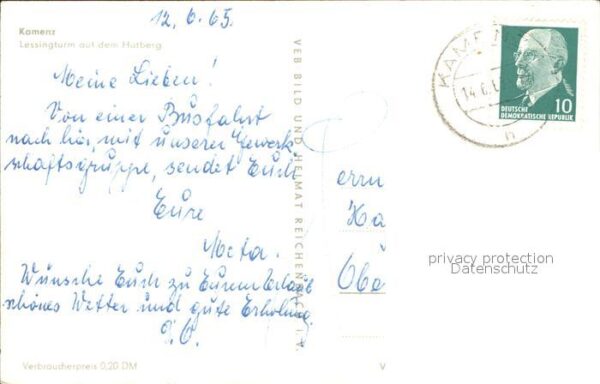 12.6.65.
Kamenz
Lessingturm auf dem Hutberg
Meine Lieben!
Von einer Busfahrt
nach hier, mit unserer Gewerk-
schaftsgruppe, sendet Euch
Eure
Meta.
Wünsche Euch zu Eurem Erlaub
schönes Wetter und gute Erholung.
D.O.
Verbraucherpreis 0,20 DM
VEB BILD UND HEIMAT REICHENBACH I. V.
KAMENZ
14.6.6
h
DEUTSCHE
DEMOKRATISCHE REPUBLIK
10
errn
Ka
Obe
V
privacy protection
Datenschutz